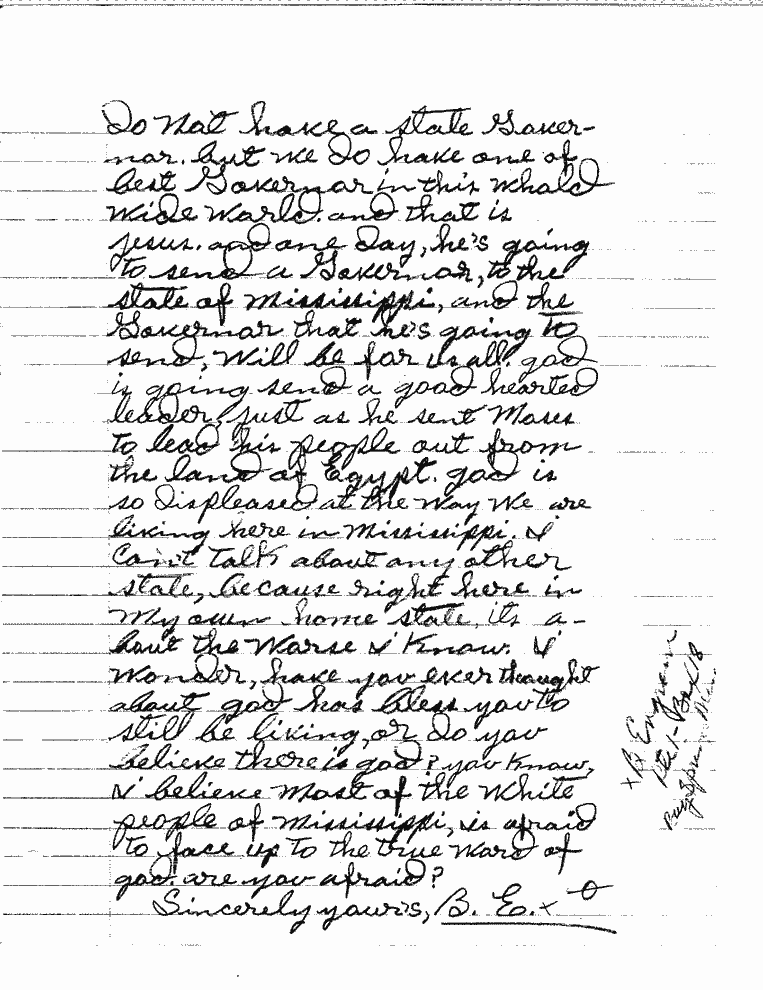 Do not have a state Gover-
nor. but we do have one of
best Governor in this whold
wide world. and that is
jesus. and one day, he's going
to send a Governor, to the
state of Mississippi, and the
Governor that he's going to
send, will be for us all. god
is going send a good hearted
leader, just as he sent Moses
to lead his people out from
the land of Egypt. god is
so displeased at the way we are
living here in Mississippi. I
can't talk about any other
state, because right here in
my own home state, its a-
bout the worse I know. I
wonder, have you ever thought
about god has bless you to
still be living, or do you
believe there is god? you know,
I believe most of the white
people of Mississippi, is afraid
to face up to the true word of
god. are you afraid?
Sincerely yours, B. E. x
x B. Engram
Rte 1 - Box 18